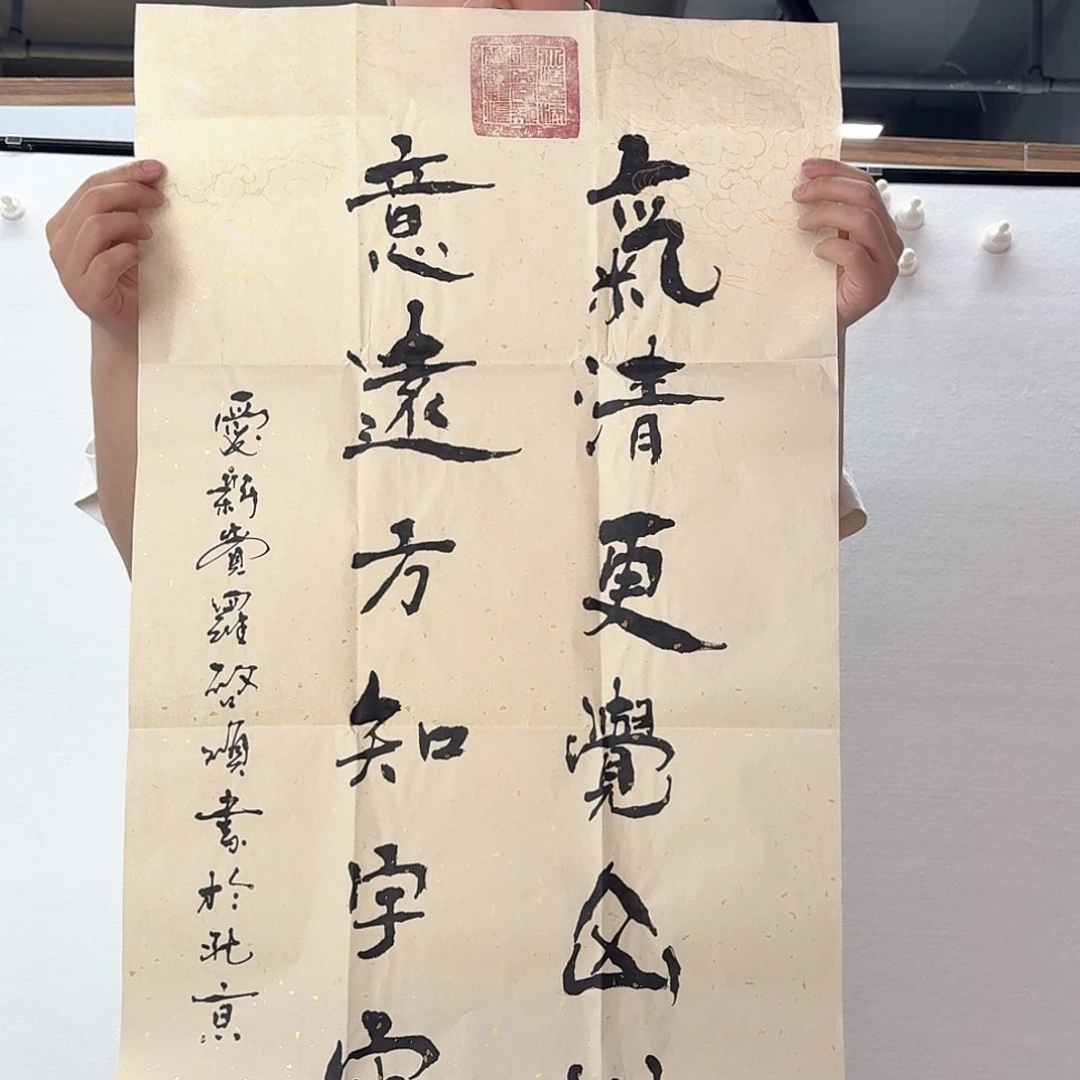 氣清更覺山
意遠方知宇宙
愛新覺羅啓書於北京